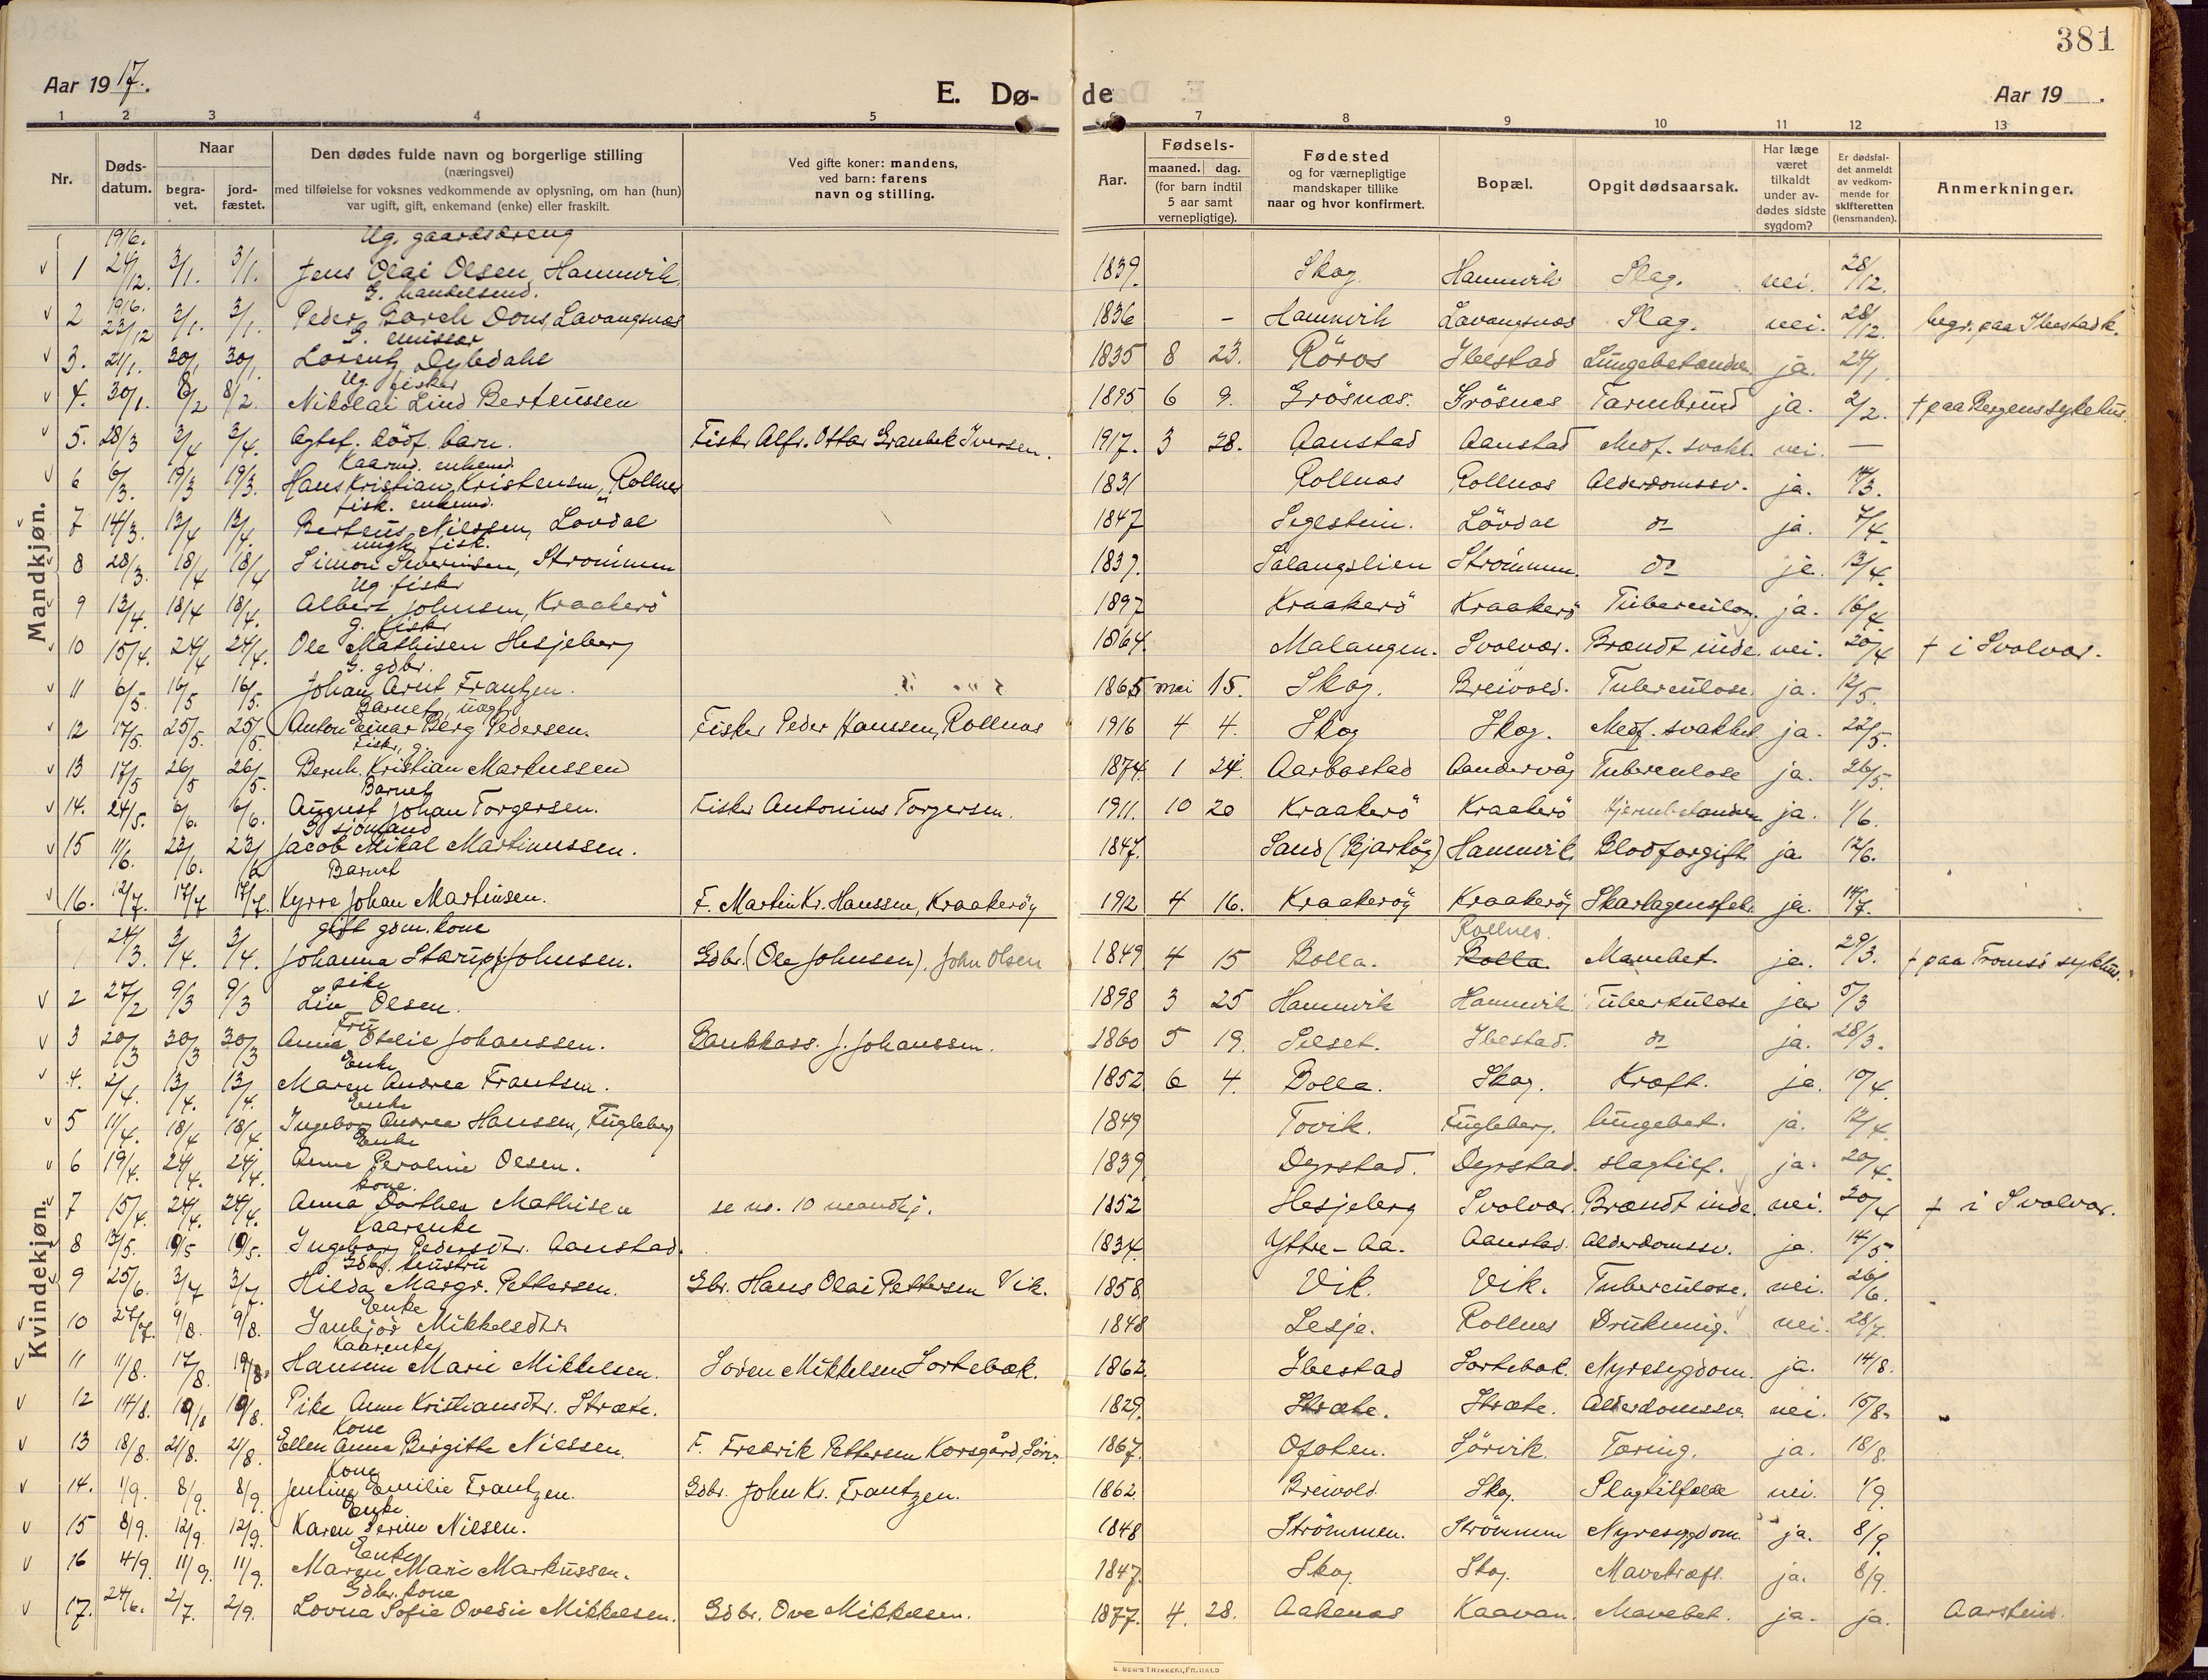 381
Aar 1917.
E. Dø-
de
Aar 19 .
1 2 3 4 5 6 7 8 9 10 11 12 13
Nr.
Døds-
datum.
Naar
begra-
vet.
jord-
fæstet.
Den dødes fulde navn og borgerlige stilling
(næringsvei)
med tilføielse for voksnes vedkommende av oplysning, om han (hun)
var ugift, gift, enkemand (enke) eller fraskilt.
Ved gifte koner: mandens,
ved barn: farens
navn og stilling.
Aar.
Fødsels-
maaned. dag.
(for barn indtil
5 aar samt
vernepligtige).
Fødested
og for værnepligtige
mandskaper tillike
naar og hvor konfirmert.
Bopæl.
Opgit dødsaarsak.
Har læge
været
tilkaldt
under av-
dødes sidste
sygdom?
Er dødsfal-
det anmeldt
av vedkom-
mende for
skifteretten
(lensmanden).
Anmerkninger.
Mandkjøn.
1916. Ug. gaardsdreng
v 1 24/12. 3/1. 3/1. Jens Olai Olsen, Hamnvik. 1839. Skog Hamnvik Slag. nei. 28/12.
1916. G. handelsmd.
v 2 23/12 3/1. 3/1. Peder Borch Dons, Lavangsnæs 1836 - Hamnvik Lavangsnæs Slag. nei. 28/12. begr. paa Ibestad k.
G. emissær
v 3. 21/1. 30/1 30/1. Lorentz Dybdahl 1835 8 23. Röros Ibestad Lungebetændse. ja. 24/1.
Ug. fisker
v 4. 30/1. 8/2 8/2. Nikolai Lind Berteussen 1895 6 9. Grösnæs. Grösnes Tarmbrud ja. 2/2. † paa Bergens sykehus
v 5. 28/3 3/4 3/4. Egtef. dödf. barn. Fisker Alfr. Ottar Granbek Iversen. 1917. 3 28. Aanstad Aanstad Medf. svakh. nei. —
Kaarmd. enkemd.
v 6 6/3. 19/3 19/3. Hans Kristian Kristensen, Rollnes 1831 Rollnæs Rollnæs Alderdomssv. ja. 14/3.
fisk. enkemd.
v 7 14/3. 13/4 13/4. Berteus Nilssen, Lövdal 1847 Segelstein. Lövdal do ja. 7/4.
ungk. fisk.
v 8 28/3. 18/4 18/4 Simon Severinsen, Strömmen 1837. Salangslien Strömmen. do ja. 13/4.
Ug. fisker
v 9 13/4. 18/4 18/4. Albert Johnsen, Kraakerö 1897 Kraakerö Kraakerö Tuberculos. ja. 16/4
g. fisker
v 10 15/4. 24/4 24/4. Ole Mathisen Hesjeberg 1864. Malangen. Svolvær. Brændt inde. nei. 20/4 † i Svolvær.
G. gdbr.
v 11 6/5. 16/5 16/5. Johan Arnt Frantzen. 1865 mai 15. Skog. Breivold. Tuberculose. ja. 12/5.
Barnet
v 12 17/5. 25/5. 25/5. Anton Einar Berg Pedersen. Fisker Peder Hanssen, Rollnæs 1916 4 4. Skog Skog. Medf. svakhet ja. 22/5.
Fisker, g.
v 13 17/5 26/5 26/5. Bernh. Kristian Markussen 1874. 1 24. Aarbostad Aandervåg Tuberculose ja. 26/5.
Barnet
v 14. 24/5. 6/6. 6/6. August Johan Torgersen. Fisker Antonius Torgersen. 1911. 10 20 Kraakerö Kraakerö Hjernebetændelse ja. 1/6.
G. sjömand
v 15 11/6. 23/6. 23/6 Jacob Mikal Martinussen. 1847. Sand (Bjarköy) Hamnvik. Blodforgift. ja 12/6.
Barnet
v 16. 12/7. 17/7 17/7. Kyrre Johan Martinsen. F. Martin Kr. Hanssen, Kraakeröy 1912 4 16. Kraakeröy Kraakeröy Skarlagensfeb. ja. 14/7.
Kvindekjøn.
gift gdm. kone Rollnes.
1 24/3. 3/4. 3/4. Johanna Starup Johnsen. Gdbr. (Ole Johnsen), John Olsen 1849 4 15 Bolla. Bolla. Mavebet. ja. 29/3. † paa Tromsö sykhus.
pike
v 2 27/2 9/3 9/3 Liv Olsen. 1898 3 25 Hamnvik Hamnvik Tuberkulose ja 5/3
Fru
v 3 20/3 30/3 30/3 Anna Otelie Johanssen. Bankkass. J. Johanssen. 1860 5 19. Silset. Ibestad. do ja. 28/3.
Enke
v 4. 2/4. 13/4. 13/4. Maren Andrea Frantsen. 1852 6 4. Bolla. Skog. Kræft. ja. 10/4.
Enke
v 5 11/4. 18/4 18/4. Ingeborg Andrea Hanssen, Fugleberg 1849 Tovik. Fugleberg. lungebet. ja. 12/4.
Enke
v 6 19/4. 24/4. 24/4. Anne Peroline Olsen. 1839 Dyrstad. Dyrstad. slagtilf. ja. 20/4.
kone.
v 7 15/4. 24/4. 24/4. Anna Dorthea Mathisen se no. 10 mandkj. 1852 Hesjeberg Svolvær. Brændt inde. nei. 20/4 † i Svolvær.
Kaarenke
v 8 13/5. 19/5 19/5. Ingeborg Pedersdtr. Aanstad. 1834. Yttre-Aa. Aanstad. Alderdomssv. ja. 14/5.
Gdbr. hustru
v 9 25/6. 3/7 3/7. Hilda Margr. Pettersen. Gbr. Hans Olai Pettersen Vik. 1858. Vik. Vik. Tuberculose. nei. 26/6.
Enke
v 10 27/7. 9/8. 9/8. Imbjör Mikkelsdtr. 1848 Lesje. Rollnes Drukning. nei. 28/7.
Kaarenke
v 11 11/8. 17/8. 19/8. Hansine Marie Mikkelsen. Sören Mikkelsen Sortebæk. 1862. Ibestad Sortebæk. Nyresygdom. ja. 14/8.
v 12 14/8. 19/8 19/8. Pike Anne Kristiansdtr. Stræte. 1829. Stræte. Stræte. Alderdomssv. nei. 15/8.
Kone
v 13 18/8. 21/8. 21/8. Ellen Anna Birgitte Nilssen. F. Fredrik Pettersen Korsgård, Sörv. 1867. Ofoten. Sörvik. Tæring. ja. 18/8.
Kone
v 14. 1/9. 8/9. 8/9. Jentine Emilie Frantzen. Gdbr. John Kr. Frantzen. 1862. Breivold. Skog. Slagtilfælde nei. 1/9.
Enke
v 15 8/9. 12/9. 12/9. Karen Serine Nilsen. 1848 Strömmen. Strömmen Nyresygdom ja. 8/9.
Enke
v 16 4/9. 11/9. 11/9. Maren Marie Markussen. 1847. Skog. Skog. Mavekræft. ja. 8/9.
Gdbr. kone
v 17. 24/6. 2/7. 2/9. Lovise Sofie Ovedie Mikkelsen. Gdbr. Ove Mikkelsen. 1877. 4. 28. Aakenæs Kaavan. Mavebet. ja. ja. Aarstein.